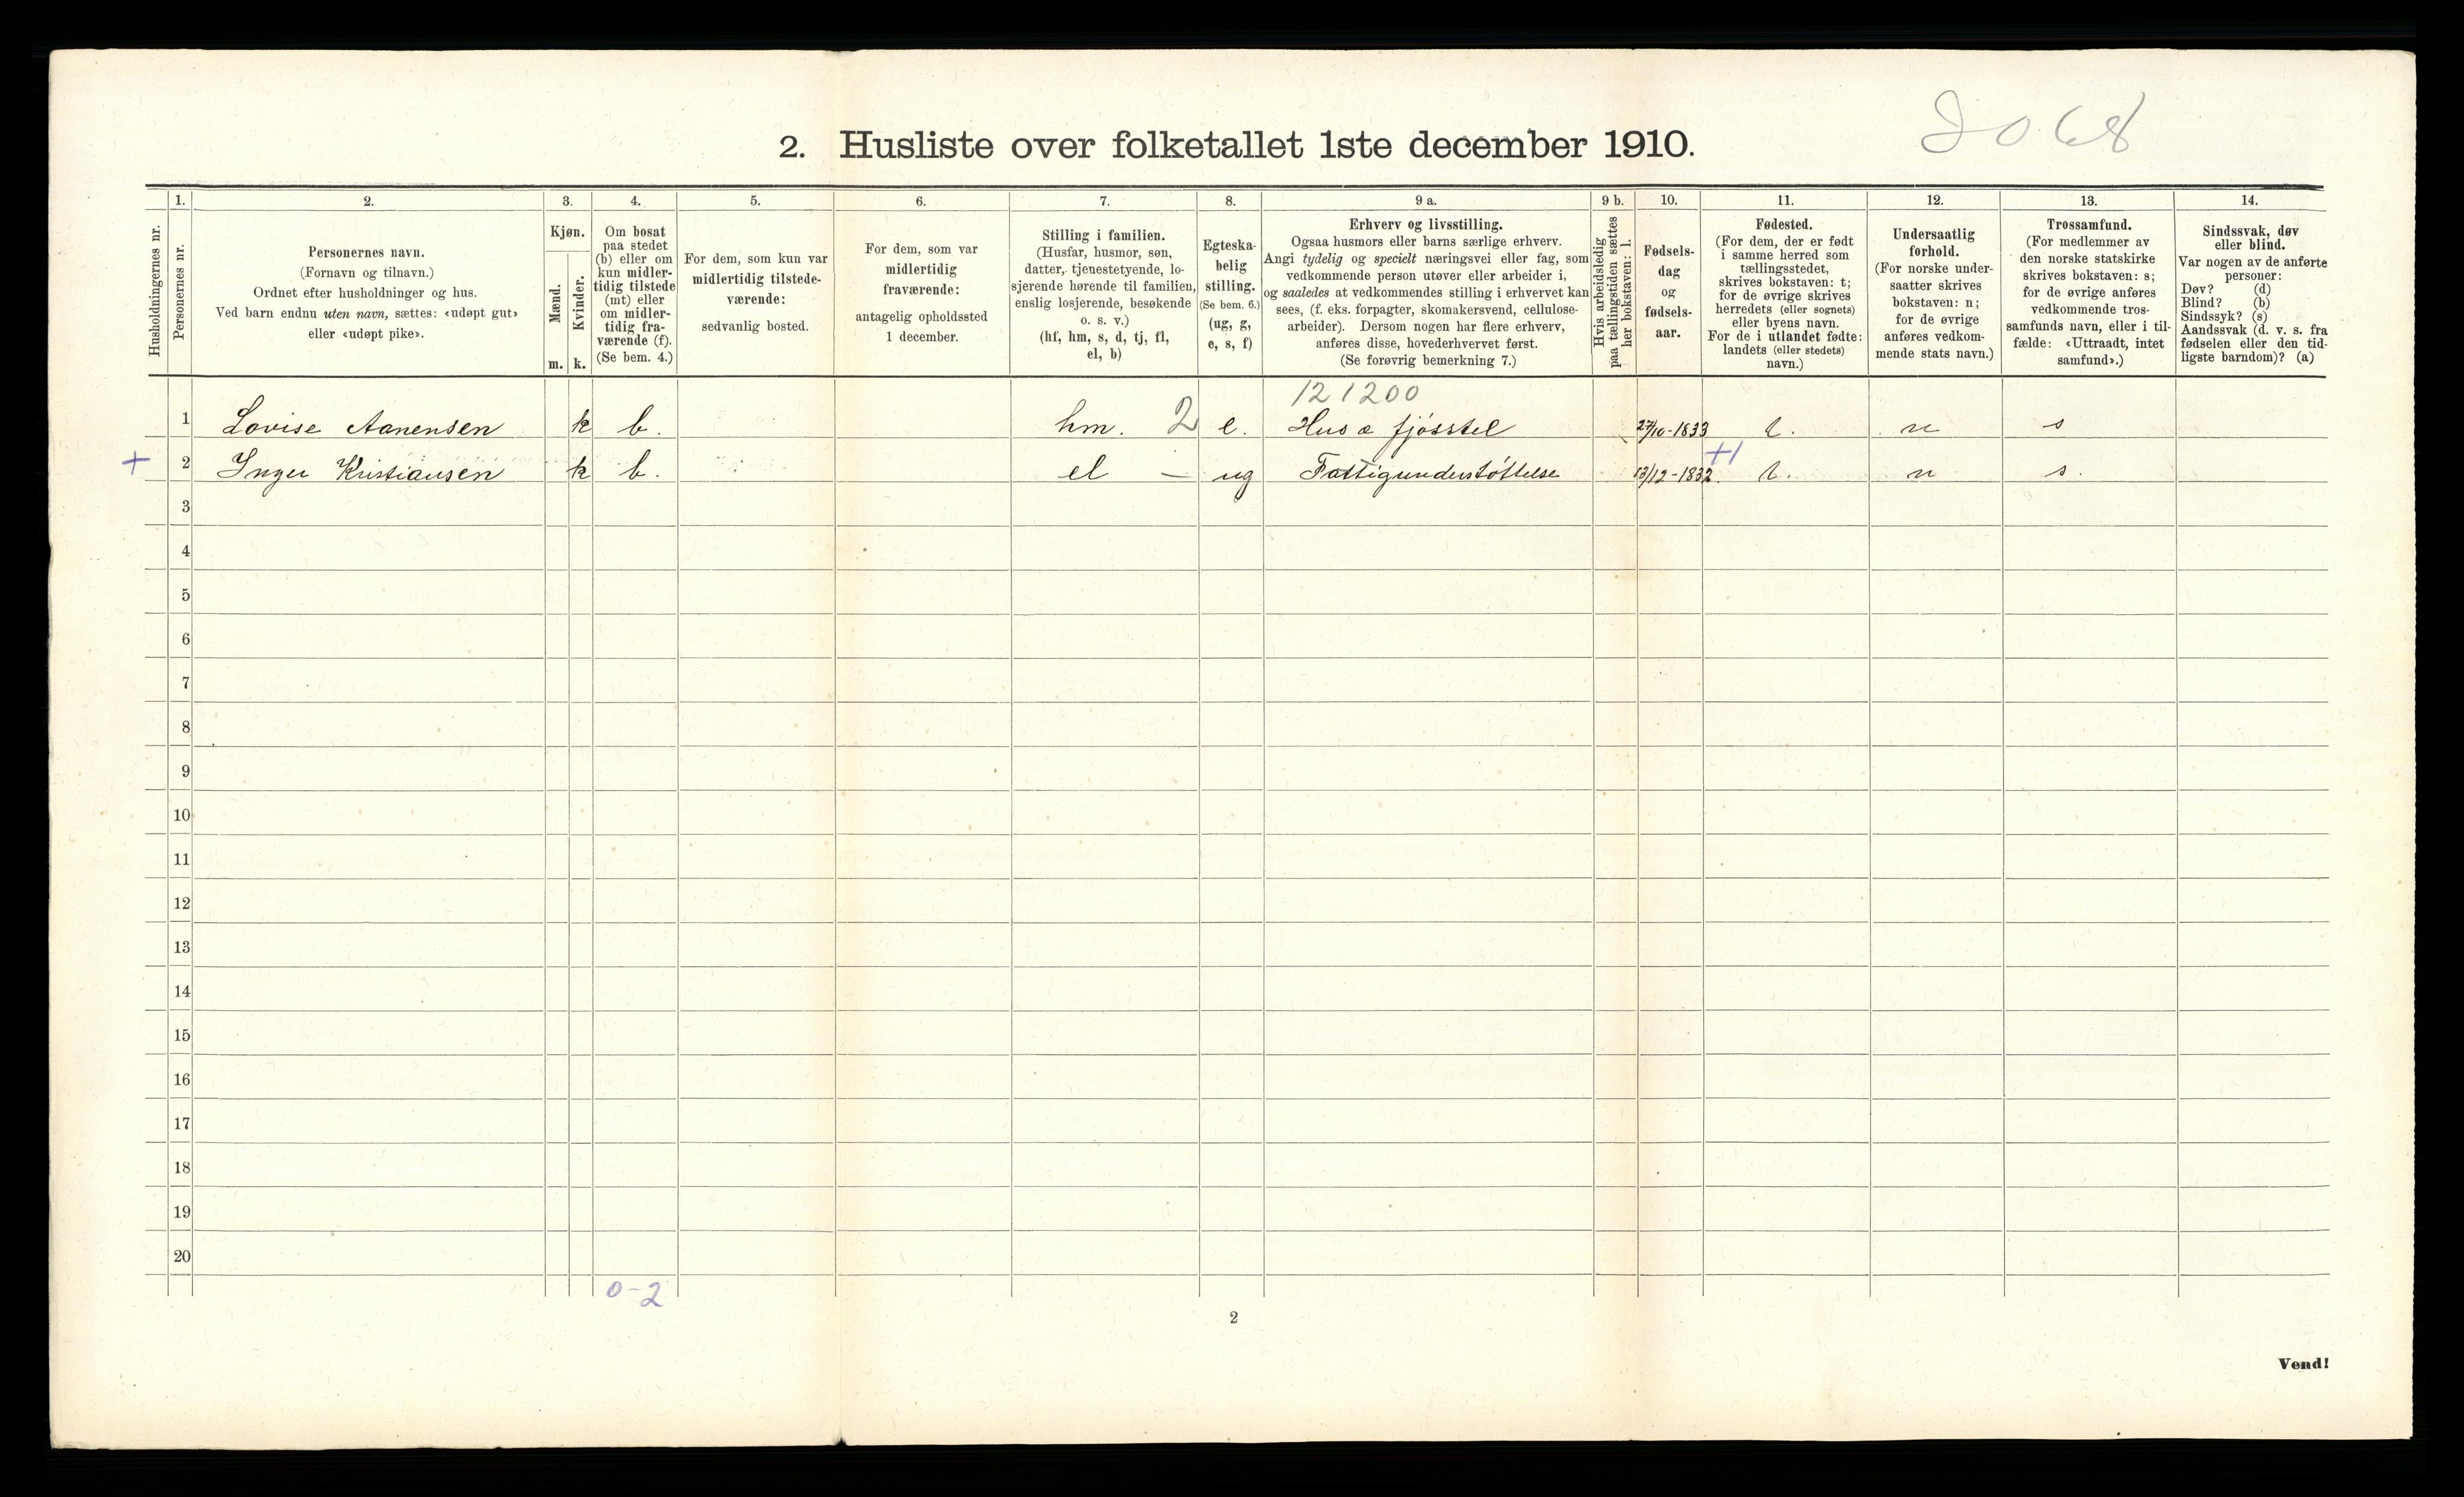 2. Husliste over folketallet 1ste december 1910.
Husholdningernes nr.
1.
Personernes nr.
2.
Personernes navn.
(Fornavn og tilnavn.)
Ordnet efter husholdninger og hus.
Ved barn endnu uten navn, sættes: «udøpt gut»
eller «udøpt pike».
3.
Kjøn.
Mænd.
Kvinder.
m. k.
4.
Om bosat
paa stedet
(b) eller om
kun midler-
tidig tilstede
(mt) eller
om midler-
tidig fra-
værende (f).
(Se bem. 4.)
5.
For dem, som kun var
midlertidig tilstede-
værende:
sedvanlig bosted.
6.
For dem, som var
midlertidig
fraværende:
antagelig opholdssted
1 december.
7.
Stilling i familien.
(Husfar, husmor, søn,
datter, tjenestetyende, lo-
sjerende hørende til familien,
enslig losjerende, besøkende
o. s. v.)
(hf, hm, s, d, tj, fl,
el, b)
8.
Egteska-
belig
stilling.
(Se bem. 6.)
(ug, g,
e, s, f)
9 a.
Erhverv og livsstilling.
Ogsaa husmors eller barns særlige erhverv.
Angi tydelig og specielt næringsvei eller fag, som
vedkommende person utøver eller arbeider i,
og saaledes at vedkommendes stilling i erhvervet kan
sees, (f. eks. forpagter, skomakersvend, cellulose-
arbeider). Dersom nogen har flere erhverv,
anføres disse, hovederhvervet først.
(Se forøvrig bemerkning 7.)
9 b.
Hvis arbeidsledig
paa tællingstiden sættes
her bokstaven: l.
10.
Fødsels-
dag
og
fødsels-
aar.
11.
Fødested.
(For dem, der er født
i samme herred som
tællingsstedet,
skrives bokstaven: t;
for de øvrige skrives
herredets (eller sognets)
eller byens navn.
For de i utlandet fødte:
landets (eller stedets)
navn.)
12.
Undersaatlig
forhold.
(For norske under-
saatter skrives
bokstaven: n;
for de øvrige
anføres vedkom-
mende stats navn.)
13.
Trossamfund.
(For medlemmer av
den norske statskirke
skrives bokstaven: s;
for de øvrige anføres
vedkommende tros-
samfunds navn, eller i til-
fælde: «Uttraadt, intet
samfund».)
14.
Sindssvak, døv
eller blind.
Var nogen av de anførte
personer:
Døv? (d)
Blind? (b)
Sindssyk? (s)
Aandssvak (d. v. s. fra
fødselen eller den tid-
ligste barndom)? (a)
121200
1 Lovise Aanensen k b. hm. 2 e. Hus & fjøsstel 27/10-1833 t. n s
+1
+ 2 Inger Kristiansen k b. el — ug Fattigunderstøttelse 13/12-1832. t. n s.
3
4
5
6
7
8
9
10
11
12
13
14
15
16
17
18
19
20
0-2
2
Vend!